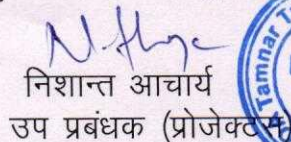 निशान्त आचार्य
उप प्रबंधक (प्रोजेक्टस)
Tamnar